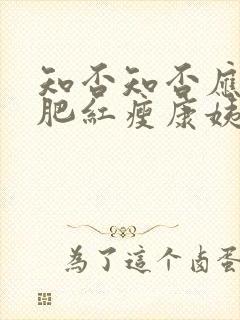 知否知否應
肥紅瘦康姨
為了這个卤蛋